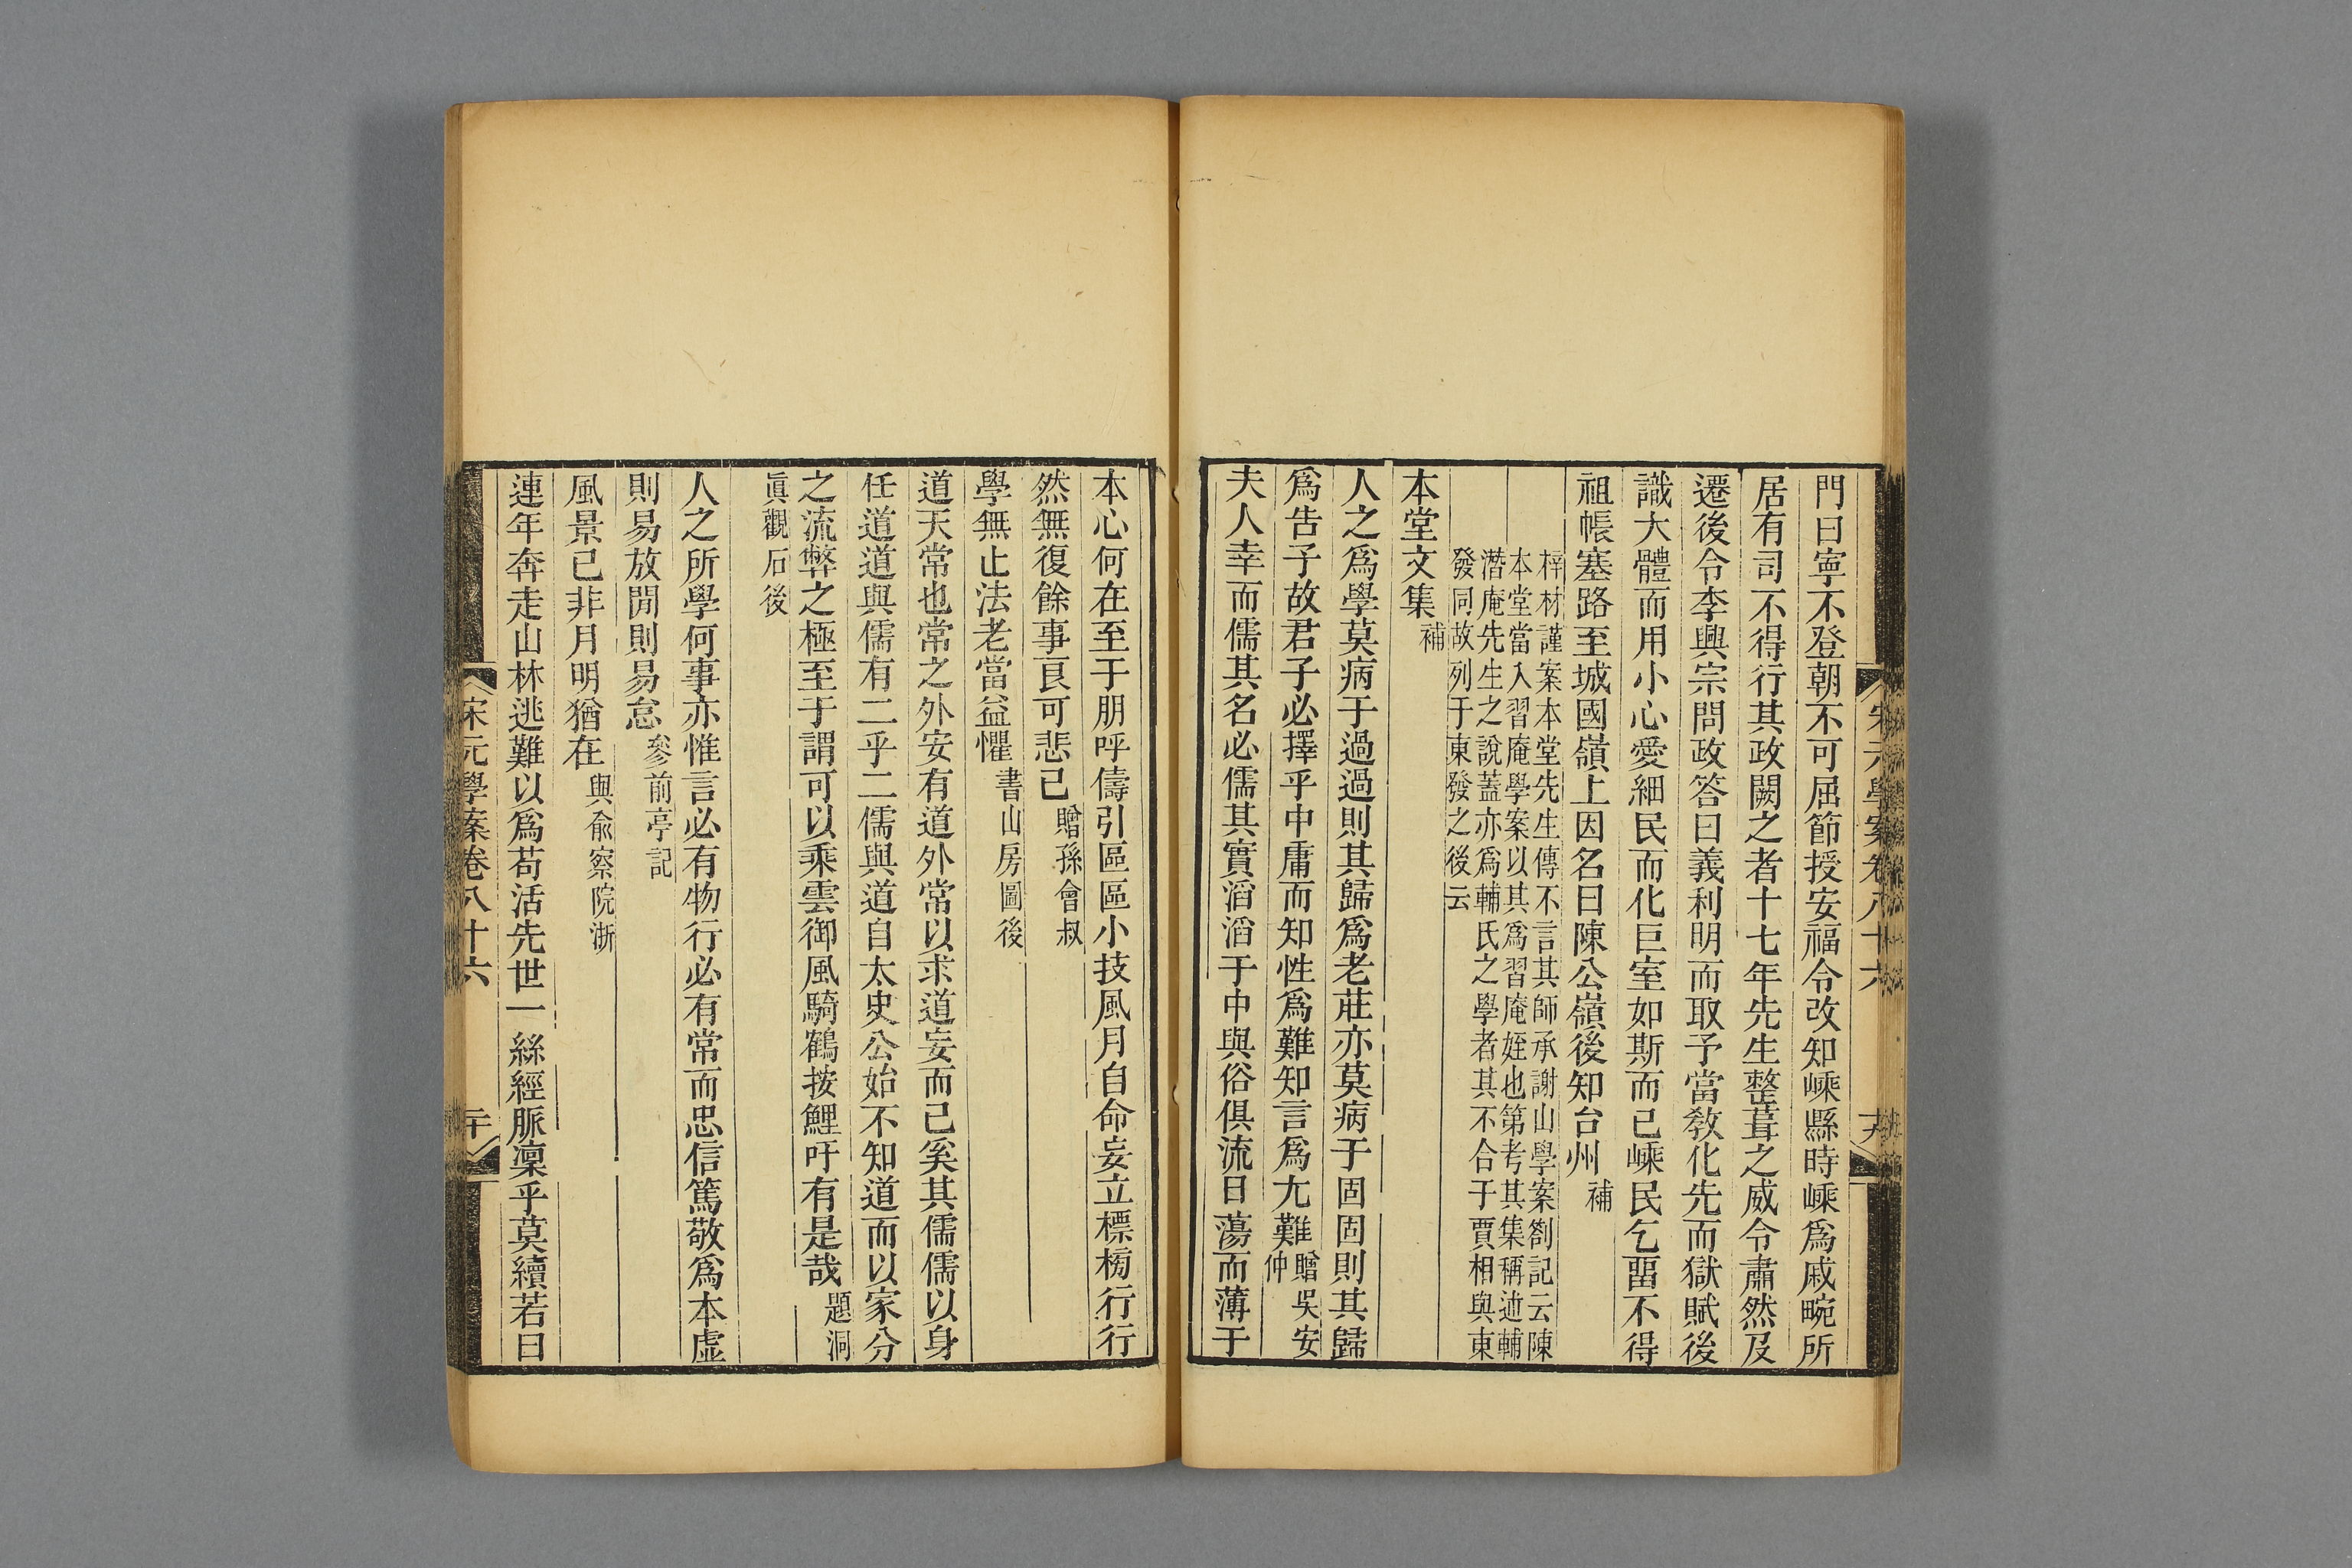 門曰寧不登朝不可屈節授安福令改知嵊縣時嵊爲戚畹所
居有司不得行其政闕之者十七年先生整葺之威令肅然及
遷後令李興宗問政答曰義利明而取予當敎化先而獄賦後
識大體而用小心愛細民而化巨室如斯而已嵊民乞畱不得
祖帳塞路至城國嶺上因名曰陳公嶺後知台州補
梓材謹案本堂先生傳不言其師承謝山學案劄記云陳
本堂當入習庵學案以其爲習庵姪也第考其集稱述輔
潛庵先生之說蓋亦爲輔氏之學者其不合于賈相與東
發同故列于東發之後云
本堂文集補
人之爲學莫病于過過則其歸爲老莊亦莫病于固固則其歸
爲告子故君子必擇乎中庸而知性爲難知言爲尢難贈吳安仲
夫人幸而儒其名必儒其實滔滔于中與俗俱流日蕩而薄于
宋元學案卷八十六
十九
本心何在至于朋呼儔引區區小技風月自命妄立標榜行行
然無復餘事良可悲已贈孫會叔
學無止法老當益懼書山房圖後
道天常也常之外安有道外常以求道妄而已奚其儒儒以身
任道道與儒有二乎二儒與道自太史公始不知道而以家分
之流弊之極至于謂可以乘雲御風騎鶴按鯉吁有是哉題洞
眞觀石後
人之所學何事亦惟言必有物行必有常而忠信篤敬爲本虛
則易放閒則易怠參前亭記
風景已非月明猶在與兪察院浙
連年奔走山林逃難以爲苟活先世一絲經脈凜乎莫續若曰
宋元學案卷八十六
二十